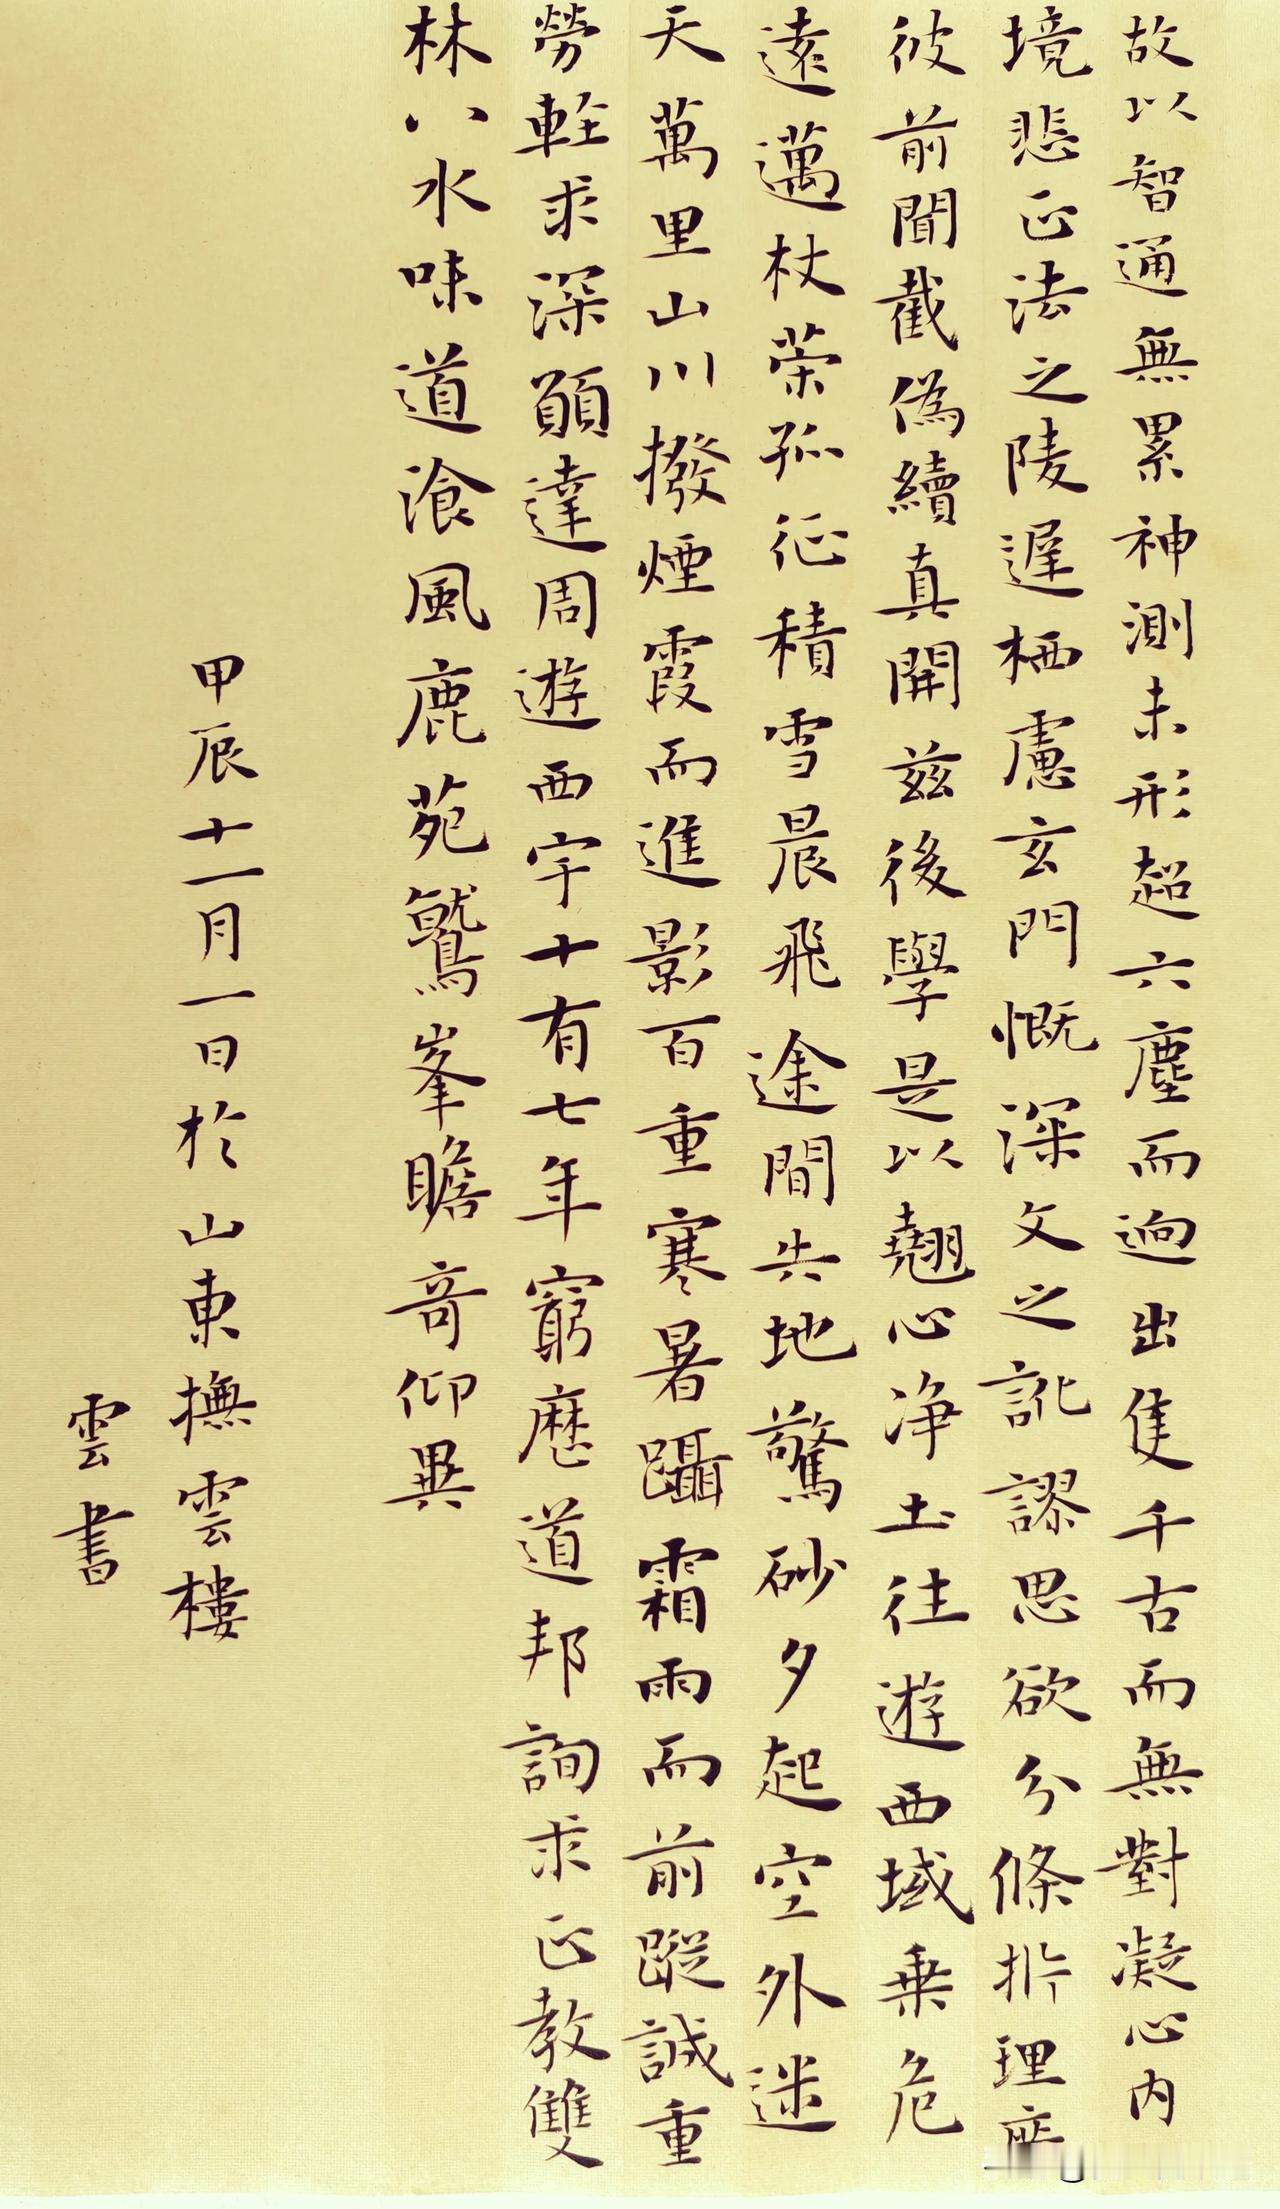 故以智通無累神測未形超六塵而迥出隻千古而無對凝心內
境悲正法之陵遲栖慮玄門慨深文之訛謬思欲分條析理
彼前聞截偽續真開茲後學是以翹心净土往遊西域乗危
遠邁杖策孤征積雪晨飛途間失地驚砂夕起空外迷
天萬里山川撥煙霞而進影百重寒暑躡霜雨而前蹤誠重
勞輕求深願達周遊西宇十有七年窮歷道邦詢求正教雙
林八水味道飡風鹿苑鷲峯瞻奇仰異
甲辰十一月一日於山東撫雲樓
雲書